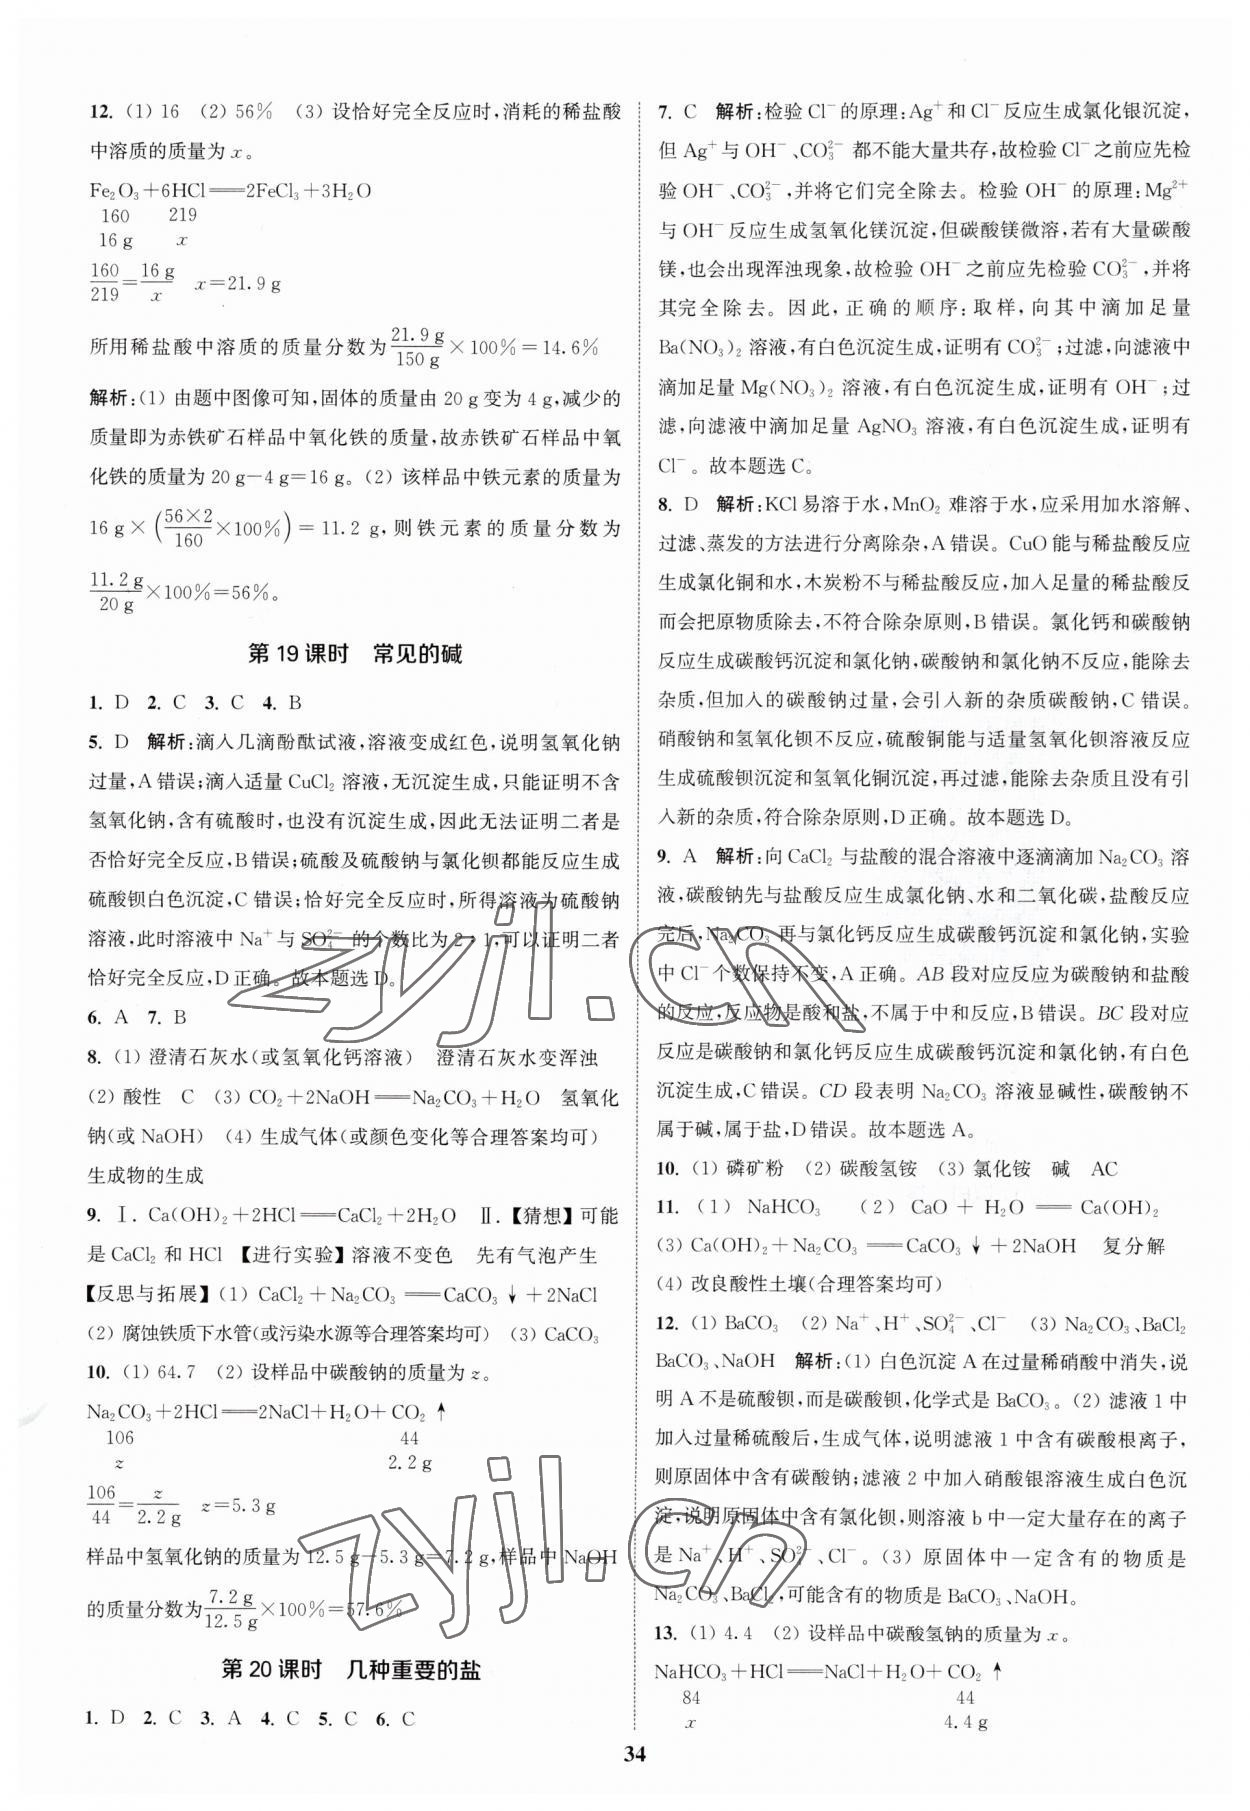 12. (1) 16 (2) 56% (3) 设恰好完全反应时,消耗的稀盐酸
中溶质的质量为 x。
Fe₂O₃+6HCl══2FeCl₃+3H₂O
160 219
16 g x
160/219=16 g/x x=21.9 g
所用稀盐酸中溶质的质量分数为21.9 g/150 g×100%=14.6%
解析:(1) 由题中图像可知,固体的质量由 20 g 变为 4 g,减少的
质量即为赤铁矿石样品中氧化铁的质量,故赤铁矿石样品中氧
化铁的质量为 20 g-4 g=16 g。(2) 该样品中铁元素的质量为
16 g×(56×2/160×100%)=11.2 g,则铁元素的质量分数为
11.2 g/20 g×100%=56%。
第 19 课时 常见的碱
1. D 2. C 3. C 4. B
5. D 解析:滴入几滴酚酞试液,溶液变成红色,说明氢氧化钠
过量,A 错误;滴入适量 CuCl₂ 溶液,无沉淀生成,只能证明不含
氢氧化钠,含有硫酸时,也没有沉淀生成,因此无法证明二者是
否恰好完全反应,B 错误;硫酸及硫酸钠与氯化钡都能反应生成
硫酸钡白色沉淀,C 错误;恰好完全反应时,所得溶液为硫酸钠
溶液,此时溶液中 Na⁺与 SO₄²⁻ 的个数比为 2∶1,可以证明二者
恰好完全反应,D 正确。故本题选 D。
6. A 7. B
8. (1) 澄清石灰水(或氢氧化钙溶液) 澄清石灰水变浑浊
(2) 酸性 C (3) CO₂+2NaOH══Na₂CO₃+H₂O 氢氧化
钠(或 NaOH) (4) 生成气体(或颜色变化等合理答案均可)
生成物的生成
9. Ⅰ. Ca(OH)₂+2HCl══CaCl₂+2H₂O Ⅱ.【猜想】可能
是 CaCl₂ 和 HCl 【进行实验】溶液不变色 先有气泡产生
【反思与拓展】(1) CaCl₂+Na₂CO₃══CaCO₃↓+2NaCl
(2) 腐蚀铁质下水管(或污染水源等合理答案均可) (3) CaCO₃
10. (1) 64.7 (2) 设样品中碳酸钠的质量为 z。
Na₂CO₃+2HCl══2NaCl+H₂O+CO₂↑
106 44
z 2.2 g
106/44=z/2.2 g z=5.3 g
样品中氢氧化钠的质量为 12.5 g-5.3 g=7.2 g,样品中 NaOH
的质量分数为7.2 g/12.5 g×100%=57.6%
第 20 课时 几种重要的盐
1. D 2. C 3. A 4. C 5. C 6. C
7. C 解析:检验 Cl⁻的原理:Ag⁺和 Cl⁻反应生成氯化银沉淀,
但 Ag⁺与 OH⁻、CO₃²⁻ 都不能大量共存,故检验 Cl⁻之前应先检
验 OH⁻、CO₃²⁻,并将它们完全除去。检验 OH⁻的原理:Mg²⁺
与 OH⁻反应生成氢氧化镁沉淀,但碳酸镁微溶,若有大量碳酸
镁,也会出现浑浊现象,故检验 OH⁻之前应先检验 CO₃²⁻,并将
其完全除去。因此,正确的顺序:取样,向其中滴加足量
Ba(NO₃)₂ 溶液,有白色沉淀生成,证明有 CO₃²⁻;过滤,向滤液中
滴加足量 Mg(NO₃)₂ 溶液,有白色沉淀生成,证明有 OH⁻;过
滤,向滤液中滴加足量 AgNO₃ 溶液,有白色沉淀生成,证明有
Cl⁻。故本题选 C。
8. D 解析:KCl 易溶于水,MnO₂ 难溶于水,应采用加水溶解、
过滤、蒸发的方法进行分离除杂,A 错误。CuO 能与稀盐酸反应
生成氯化铜和水,木炭粉不与稀盐酸反应,加入足量的稀盐酸反
而会把原物质除去,不符合除杂原则,B 错误。氯化钙和碳酸钠
反应生成碳酸钙沉淀和氯化钠,碳酸钠和氯化钠不反应,能除去
杂质,但加入的碳酸钠过量,会引入新的杂质碳酸钠,C 错误。
硝酸钠和氢氧化钡不反应,硫酸铜能与适量氢氧化钡溶液反应
生成硫酸钡沉淀和氢氧化铜沉淀,再过滤,能除去杂质且没有引
入新的杂质,符合除杂原则,D 正确。故本题选 D。
9. A 解析:向 CaCl₂ 与盐酸的混合溶液中逐滴滴加 Na₂CO₃ 溶
液,碳酸钠先与盐酸反应生成氯化钠、水和二氧化碳,盐酸反应
完后,Na₂CO₃ 再与氯化钙反应生成碳酸钙沉淀和氯化钠,实验
中 Cl⁻个数保持不变,A 正确。AB 段对应反应为碳酸钠和盐酸
的反应,反应物是酸和盐,不属于中和反应,B 错误。BC 段对应
反应是碳酸钠和氯化钙反应生成碳酸钙沉淀和氯化钠,有白色
沉淀生成,C 错误。CD 段表明 Na₂CO₃ 溶液显碱性,碳酸钠不
属于碱,属于盐,D 错误。故本题选 A。
10. (1) 磷矿粉 (2) 碳酸氢铵 (3) 氯化铵 碱 AC
11. (1) NaHCO₃ (2) CaO+H₂O══Ca(OH)₂
(3) Ca(OH)₂+Na₂CO₃══CaCO₃↓+2NaOH 复分解
(4) 改良酸性土壤(合理答案均可)
12. (1) BaCO₃ (2) Na⁺、H⁺、SO₄²⁻、Cl⁻ (3) Na₂CO₃、BaCl₂
BaCO₃、NaOH 解析:(1) 白色沉淀 A 在过量稀硝酸中消失,说
明 A 不是硫酸钡,而是碳酸钡,化学式是 BaCO₃。(2) 滤液 1 中
加入过量稀硫酸后,生成气体,说明滤液 1 中含有碳酸根离子,
则原固体中含有碳酸钠;滤液 2 中加入硝酸银溶液生成白色沉
淀,说明原固体中含有氯化钡,则溶液 b 中一定大量存在的离子
是 Na⁺、H⁺、SO₄²⁻、Cl⁻。(3) 原固体中一定含有的物质是
Na₂CO₃、BaCl₂,可能含有的物质是 BaCO₃、NaOH。
13. (1) 4.4 (2) 设样品中碳酸氢钠的质量为 x。
NaHCO₃+HCl══NaCl+H₂O+CO₂↑
84 44
x 4.4 g
34
zyjl.cn
zyjl.cn